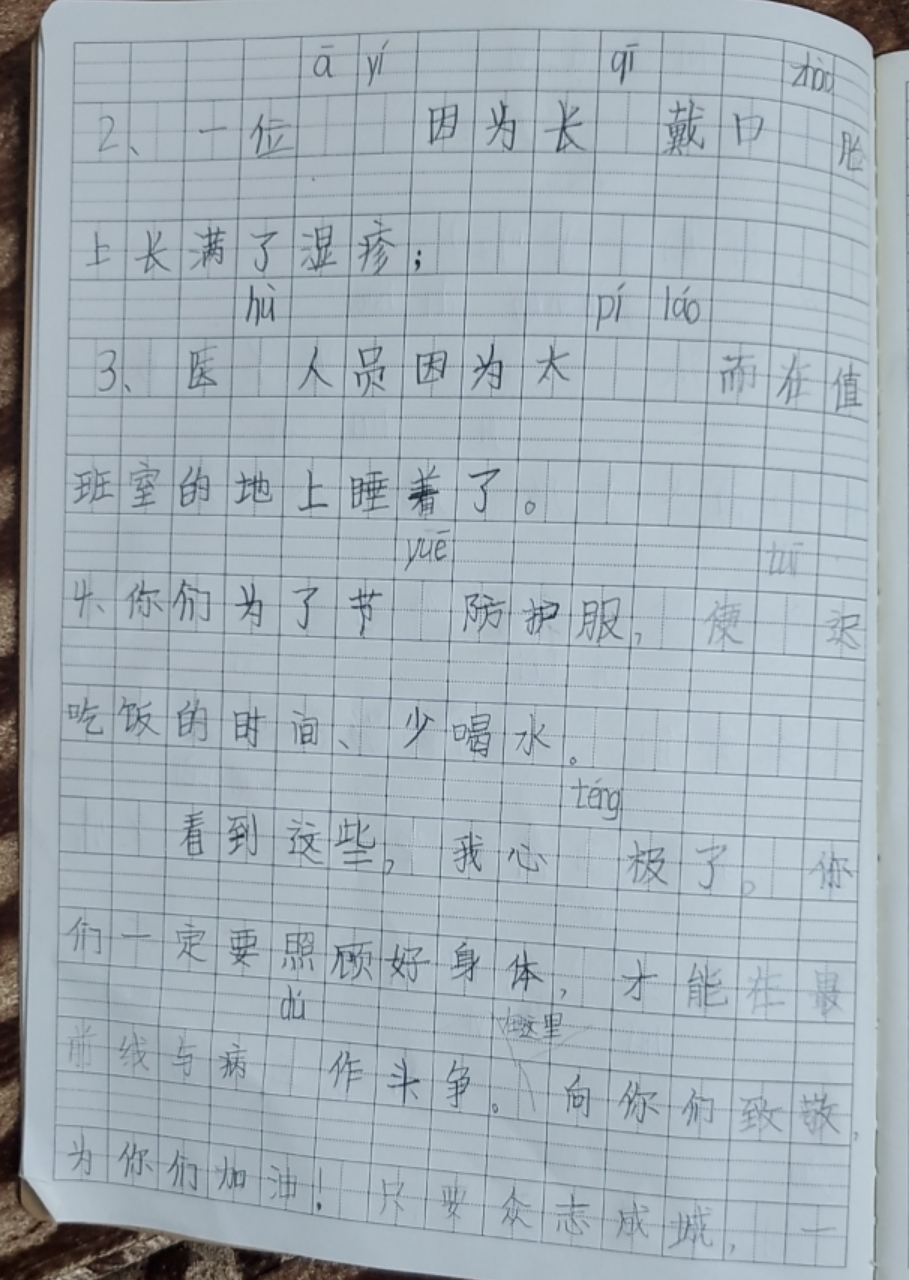 ā yí qī zhào
2、一位 因为长 戴口 脸
上长满了湿疹；
hù pí láo
3、医 人员因为太 而在值
班室的地上睡着了。
yuē tuī
4、你们为了节 防护服，便 迟
吃饭的时间、少喝水。
téng
看到这些，我心 极了，你
们一定要照顾好身体，才能在最
dú 在这里
前线与病 作斗争。向你们致敬，
为你们加油！只要众志成城，一